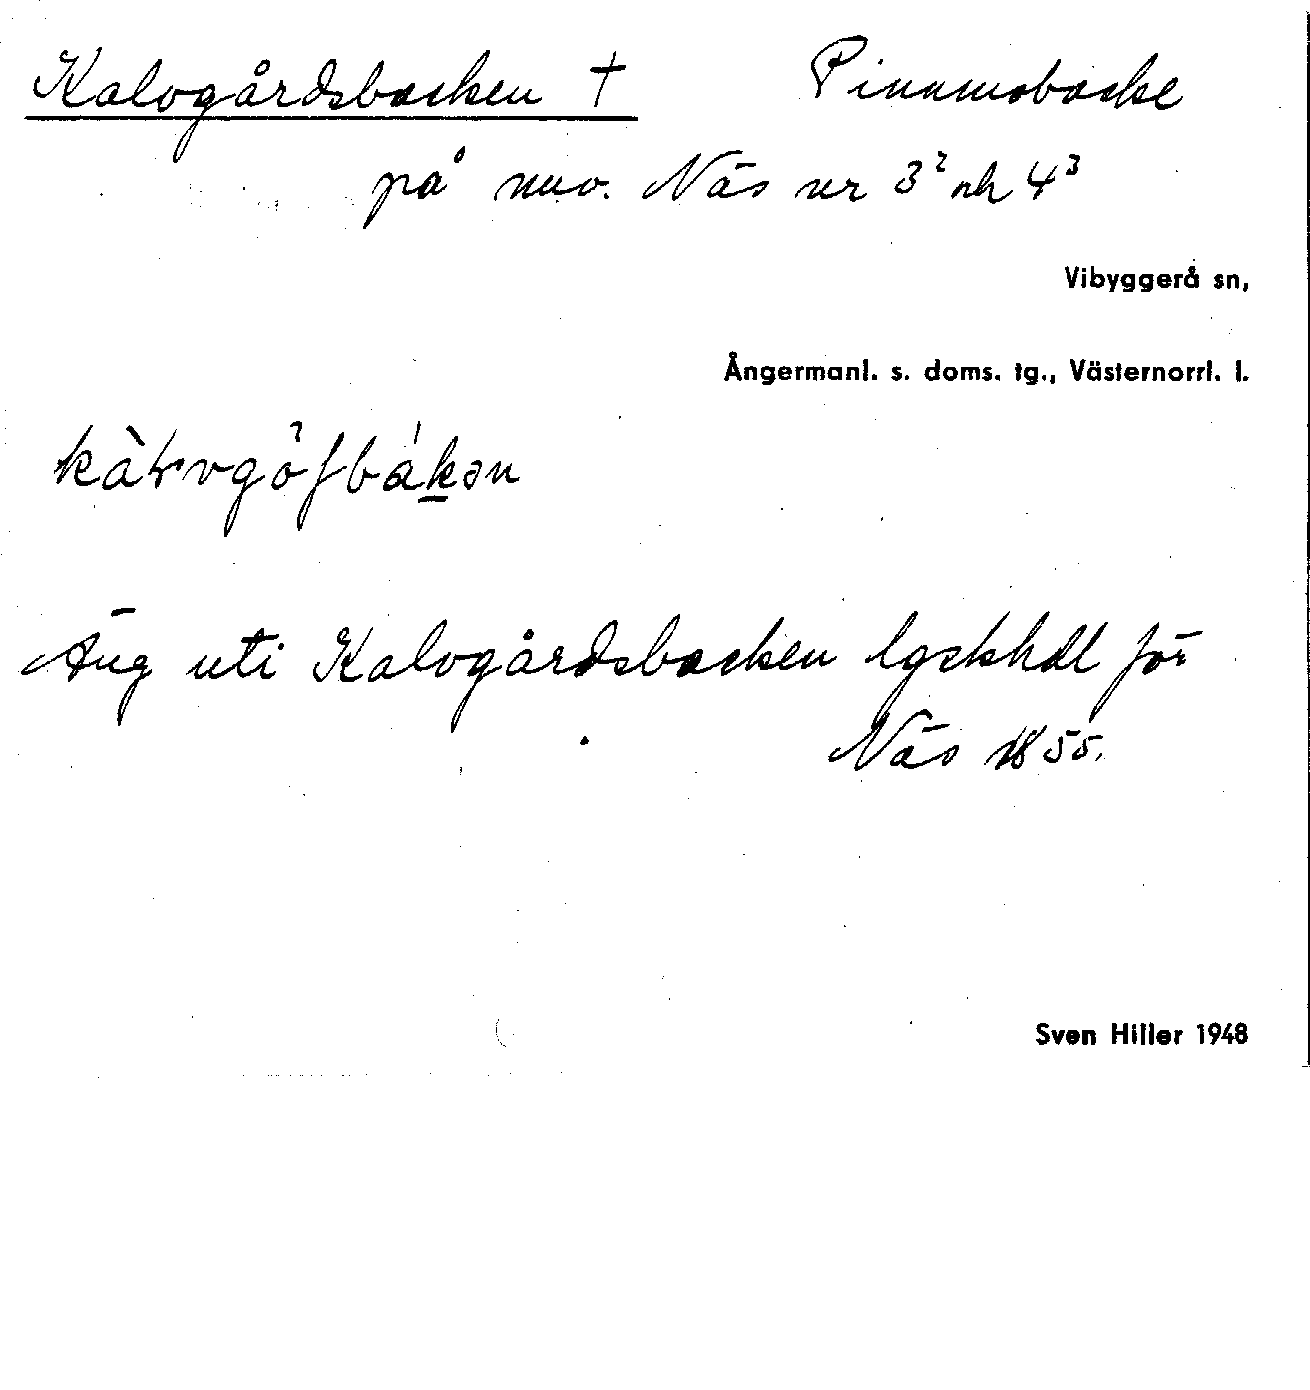 Kalvgårdsbacken † Pinnmobacke
på nuv. Näs nr 3² och 4³
Vibyggerå sn,
Ångermanl. s. doms. tg., Västernorrl. l.
Äng uti Kalvgårdsbacken lgskhdl för
Näs 1855.
Sven Hiller 1948